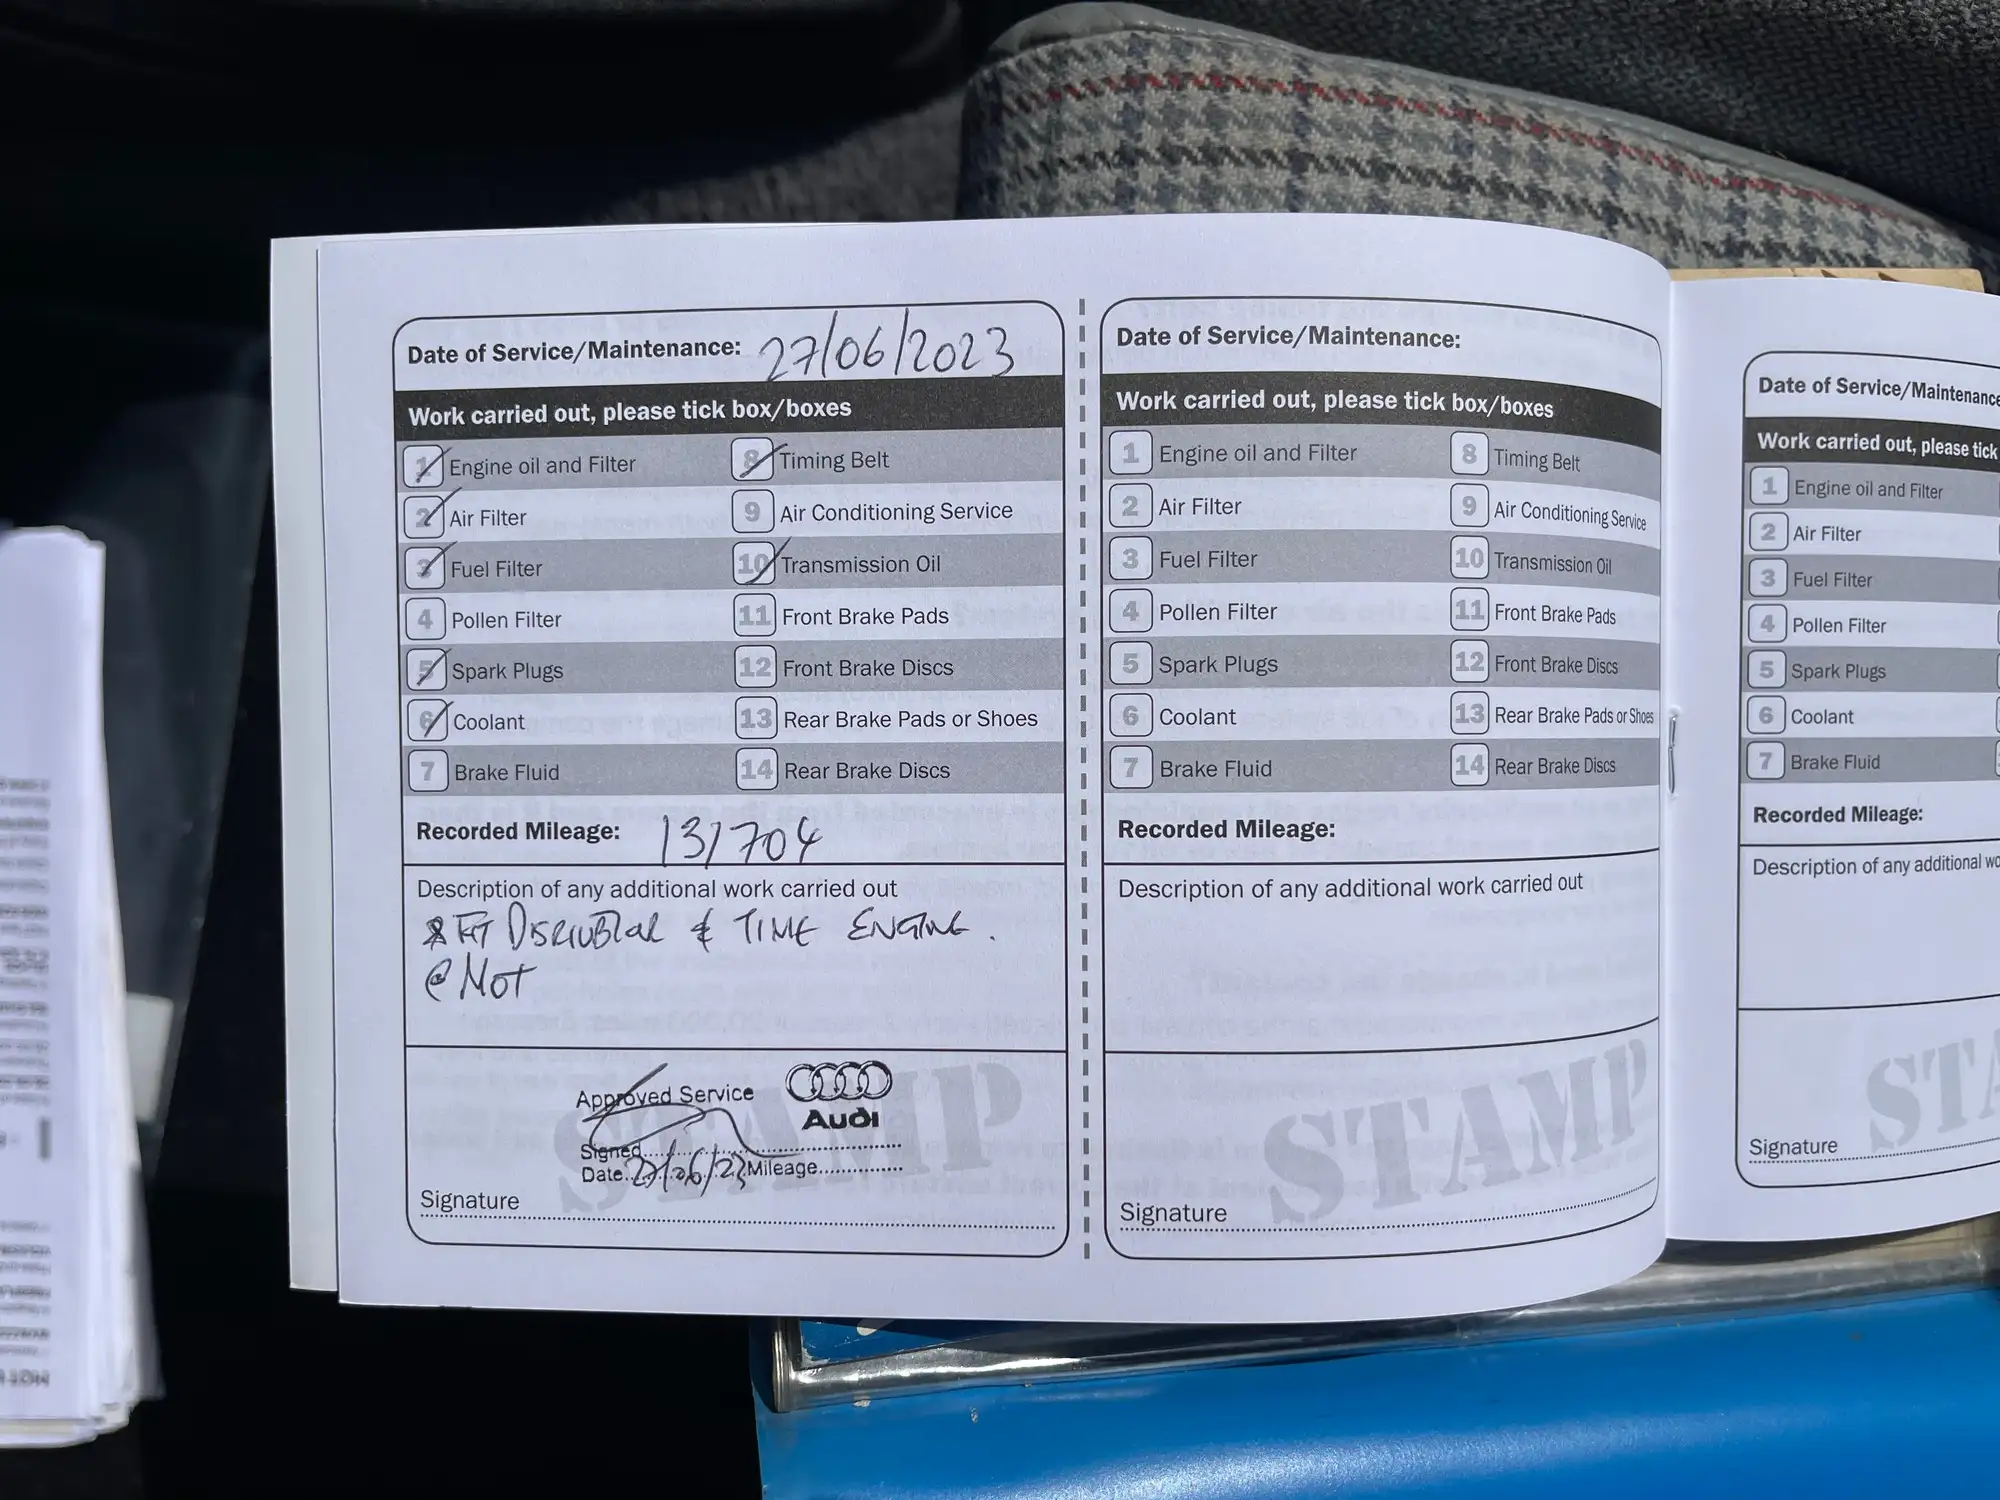 Date of Service/Maintenance: 27/06/2023
Work carried out, please tick box/boxes
1 Engine oil and Filter
2 Air Filter
3 Fuel Filter
4 Pollen Filter
5 Spark Plugs
6 Coolant
7 Brake Fluid
8 Timing Belt
9 Air Conditioning Service
10 Transmission Oil
11 Front Brake Pads
12 Front Brake Discs
13 Rear Brake Pads or Shoes
14 Rear Brake Discs
Recorded Mileage: 131704
Description of any additional work carried out
& TIME ENGINE.
@ MOT
STAMP
Approved Service
Audi
Signed
Date 27/06/23 Mileage
Signature
Date of Service/Maintenance:
Work carried out, please tick box/boxes
1 Engine oil and Filter
2 Air Filter
3 Fuel Filter
4 Pollen Filter
5 Spark Plugs
6 Coolant
7 Brake Fluid
8 Timing Belt
9 Air Conditioning Service
10 Transmission Oil
11 Front Brake Pads
12 Front Brake Discs
13 Rear Brake Pads or Shoes
14 Rear Brake Discs
Recorded Mileage:
Description of any additional work carried out
STAMP
Signature
Date of Service/Maintenance
Work carried out, please tick
1 Engine oil and Filter
2 Air Filter
3 Fuel Filter
4 Pollen Filter
5 Spark Plugs
6 Coolant
7 Brake Fluid
Recorded Mileage:
Description of any additional wo
STA
Signature